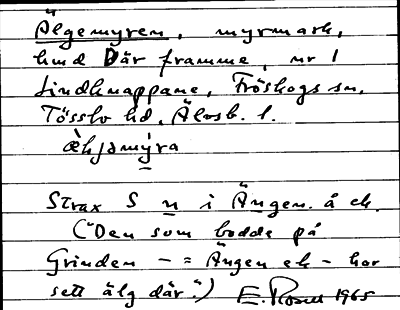 Älgemyren, myrmark,
hmd Där framme, nr 1
Lindknappane, Fröskogs sn,
Tössbo hd, Älvsb. l.
æ̀lgjəmýra
Strax S n i Ängen. å ek.
("Den som bodde på
Grinden – = Ängen ek – har
sett älg där.") E. 1965